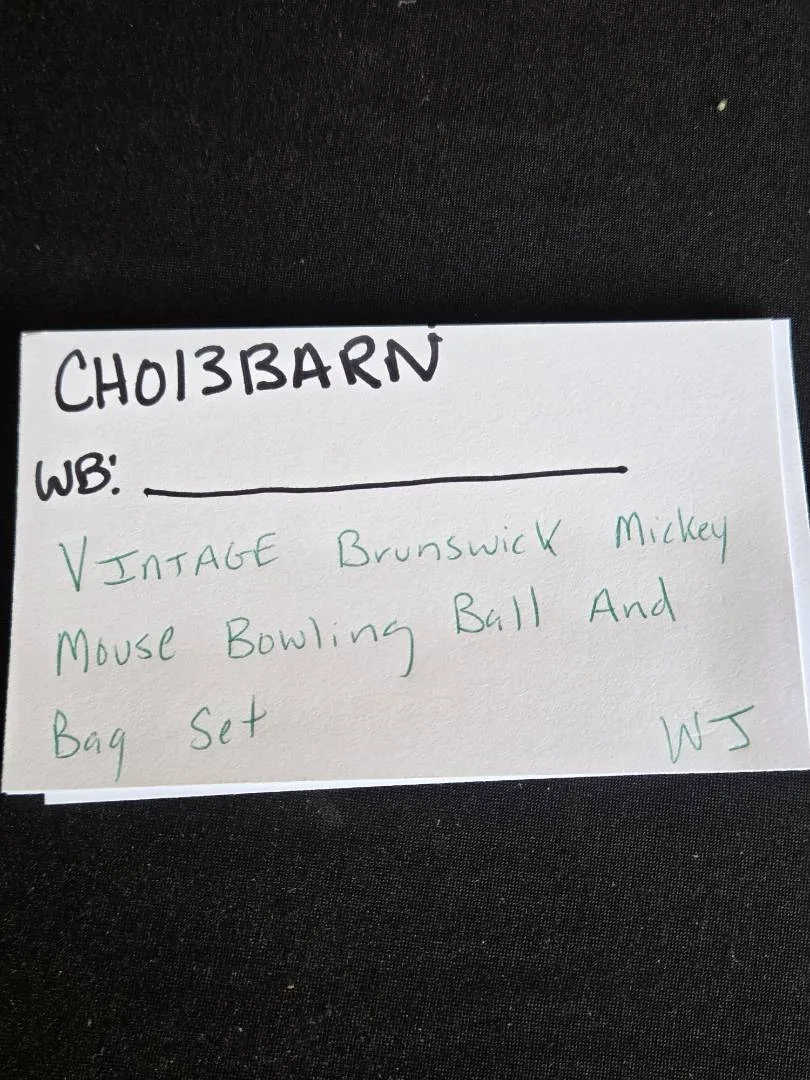 CH013BARN
WB: ____________
VINTAGE Brunswick Mickey
Mouse Bowling Ball And
Bag Set WJ